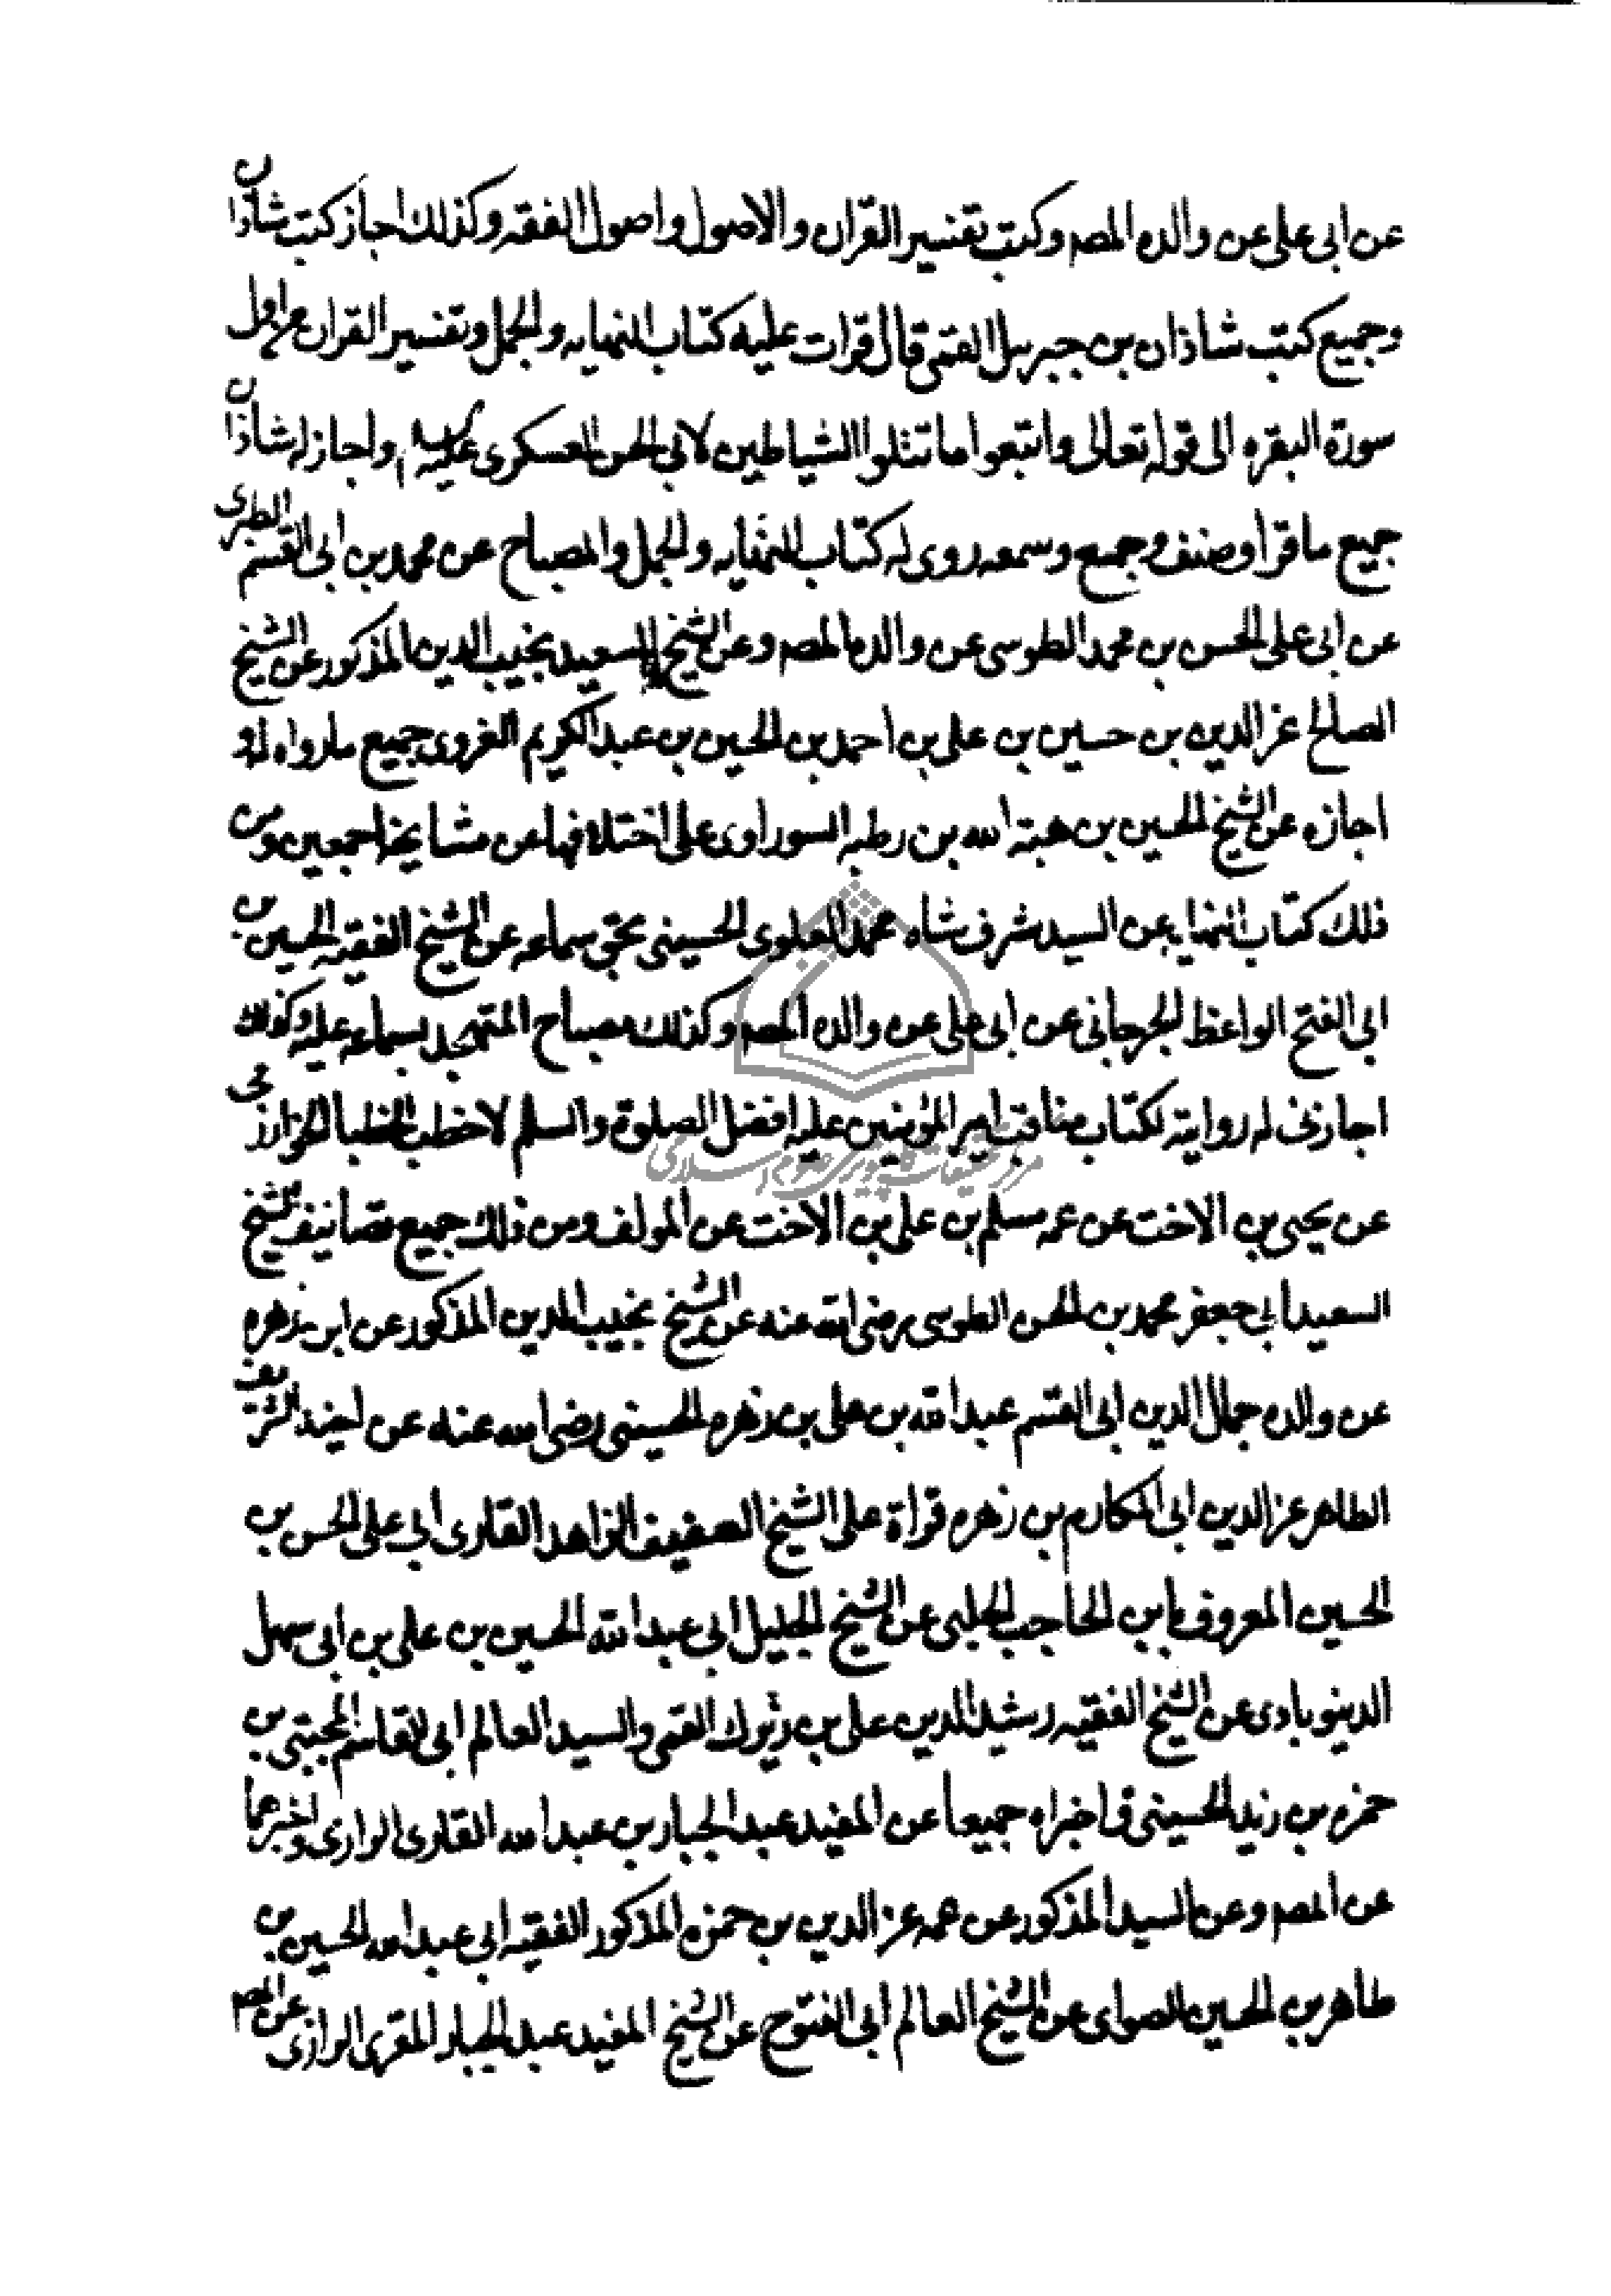 عن ابى على عن والده المصـ وكتب تفسير القران والاصول واصول الفقه وكذلك اجاز كتب شاذان
وجميع كتب شاذان بن جبريل القمى قال قرات عليه كتاب النهايه والجمل وتفسير القران من اول
سورة البقره الى قوله تعالى واتبعوا ما تتلوا الشياطين لابى الحسن العسكرى عليه واجاز له شاذان
جميع ما قرا وصنف وجمع وسمعه روى له كتاب النهايه والجمل والمصباح عن محمد بن ابى القسم الطبرى
عن ابى على الحسن بن محمد الطوسى عن والده المصـ وعن الشيخ السعيد نجيب الدين المذكور عن الشيخ
الصالح عز الدين بن حسين بن على بن احمد بن الحسين بن عبد الكريم الغروى جميع ما رواه له
اجازه عن الشيخ الحسين بن هبة الله بن رطبه السوراوى على اختلافها عن مشايخه اجمعين ومن
ذلك كتاب النهايه عن السيد شرف شاه محمد العلوى الحسينى بحق سماعه عن الشيخ الفقيه الحسين بن
ابى الفتح الواعظ الجرجانى عن ابى على عن والده المصـ وكذلك مصباح المتهجد بسماعه عليه وكذلك
اجازنى له روايته لكتاب مناقب امير المؤمنين عليه افضل الصلوة والسلم لاخطب الخطبا الخوارزمى
عن يحيى بن الاخت عن عمه مسلم بن على بن الاخت عن المولف ومن ذلك جميع تصانيف الشيخ
السعيد ابى جعفر محمد بن الحسن الطوسى رضى الله عنه عن الشيخ نجيب الدين المذكور عن ابن زهره
عن والده جمال الدين ابى القسم عبد الله بن على بن زهره الحسينى رضى الله عنه عن اخيه الشريف
الطاهر عز الدين ابى المكارم بن زهره قراة على الشيخ العفيف الزاهد القارى ابى على الحسن بن
الحسين المعروف بابن الحاجب الحلبى عن الشيخ الجليل ابى عبد الله الحسين بن على بن ابى سهل
الدينوبادى عن الشيخ الفقيه رشيد الدين على بن زيرك القمى والسيد العالم ابى القاسم المجتبى بن
حمزه بن زيد الحسينى فاخبراه جميعا عن المفيد عبد الجبار بن عبد الله القارى الرازى واخبرهما
عن المصـ وعن السيد المذكور عن عمه عز الدين بن حمزه المذكور الفقيه ابى عبد الله الحسين بن
طاهر بن الحسين الصواى عن الشيخ العالم ابى الفتوح عن الشيخ المفيد عبد الجبار المقرى الرازى عن المصـ